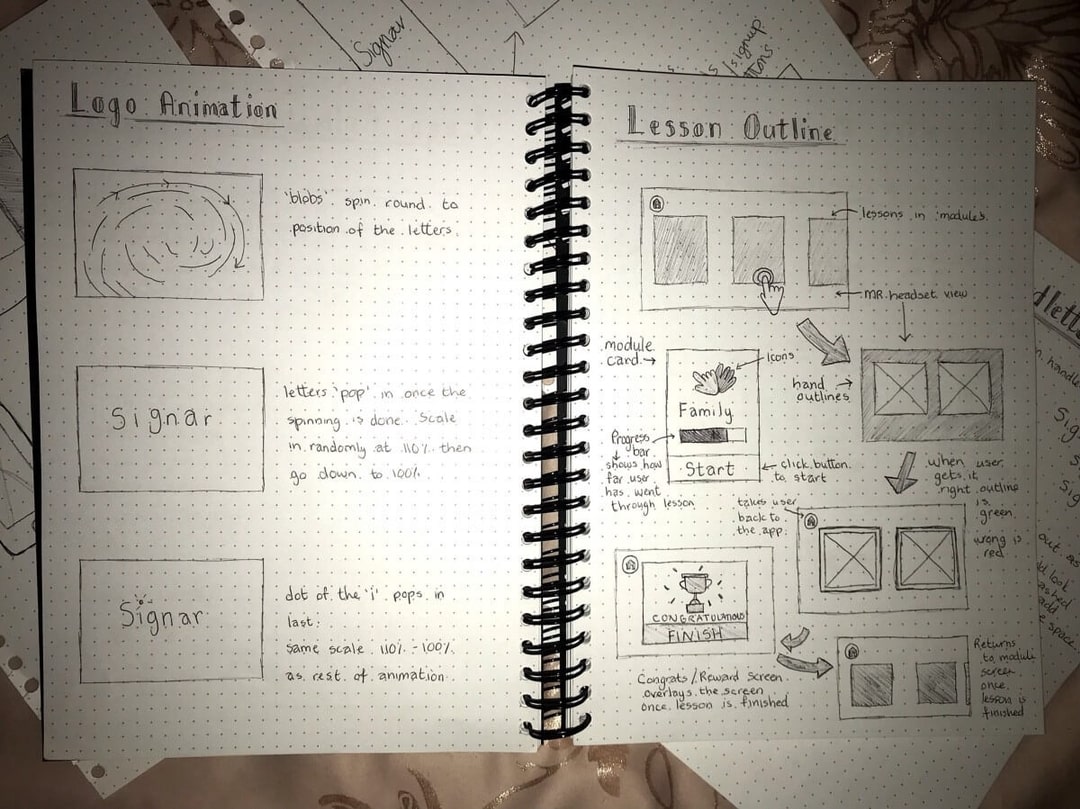 Signar
signup
Logo Animation
'blobs' spin round to
position of the letters.
Signar
letters 'pop' in once the
spinning is done. Scale
in randomly at 110% then
go down to 100%
Signar
dot of the 'i' pops in
last.
same scale 110% - 100%
as rest of animation
Lesson Outline
lessons in modules.
MR headset view
module
card
icons
Family
Progress
bar
shows how
far user
has went
through lesson
Start
click button
to start
hand
outlines
when user
gets it
right outline
is
green
wrong is
red
takes user
back to
the app.
CONGRATULATIONS
FINISH
Congrats/Reward Screen
overlays the screen
once lesson is finished
Returns
to module
screen
once
lesson is
finished
out as
look
space.